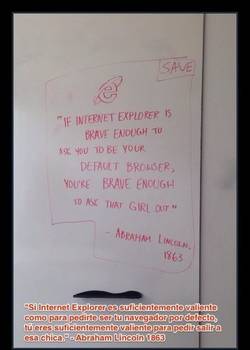 SAVE
e
"IF INTERNET EXPLORER IS
BRAVE ENOUGH TO
ASK YOU TO BE YOUR
DEFAULT BROWSER,
YOU'RE BRAVE ENOUGH
TO ASK THAT GIRL OUT"
- ABRAHAM LINCOLN,
1863
"Si Internet Explorer es suficientemente valiente
como para pedirte ser tu navegador por defecto,
tú eres suficientemente valiente para pedir salir a
esa chica " - Abraham Lincoln 1863